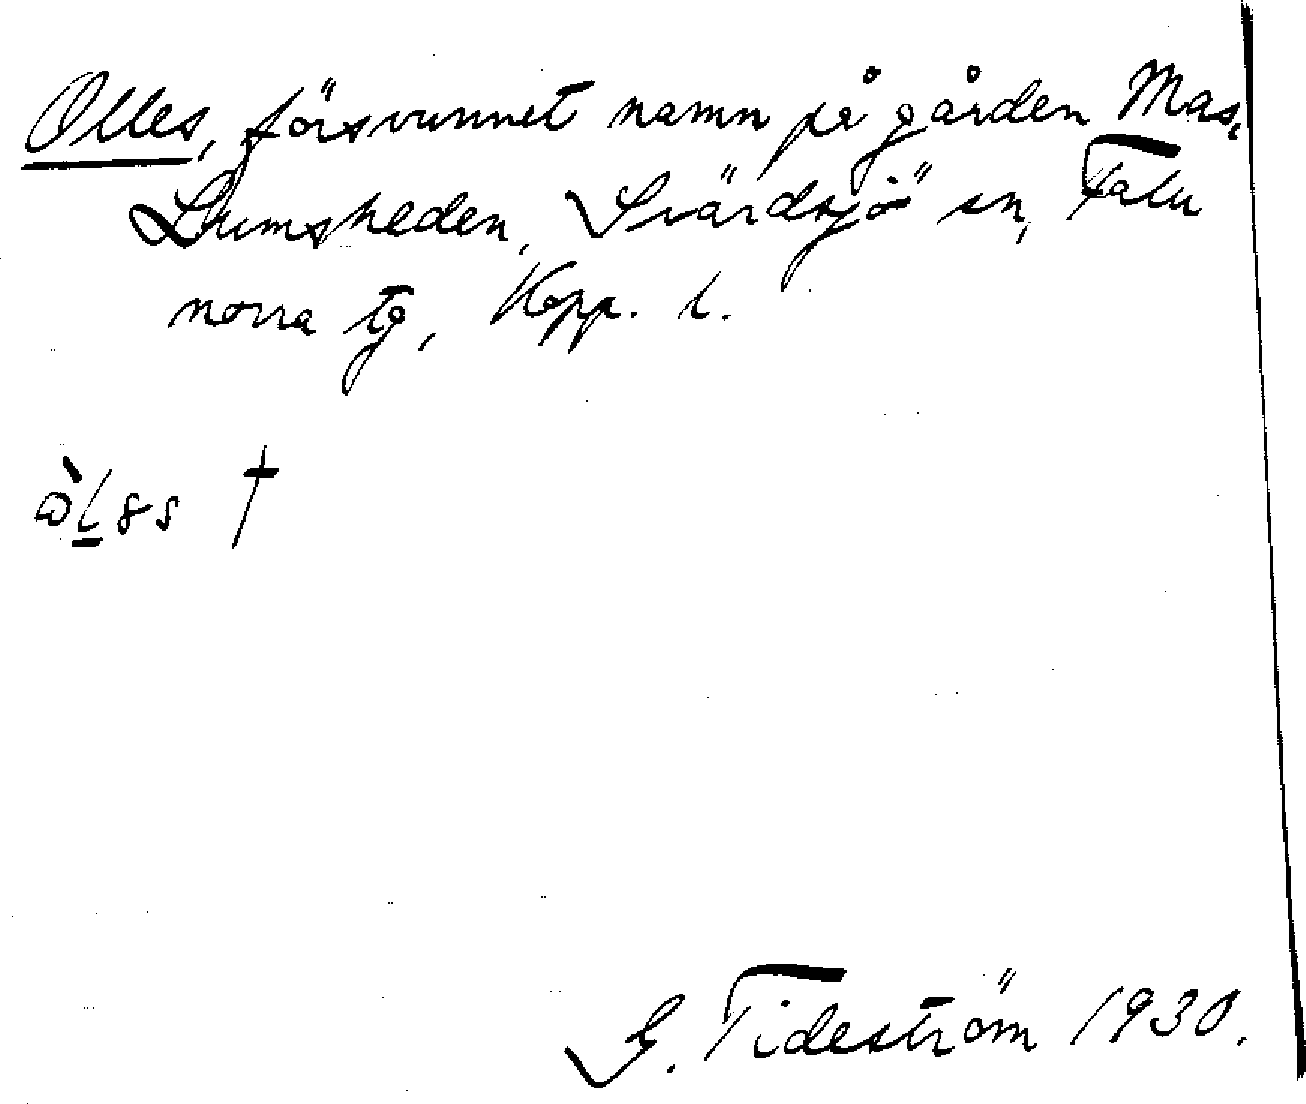 Olles, försvunnet namn på gården Mas,
Lumsheden, Svärdsjö sn, Falu
norra tg, Kopp. l.
G. Tideström 1930.